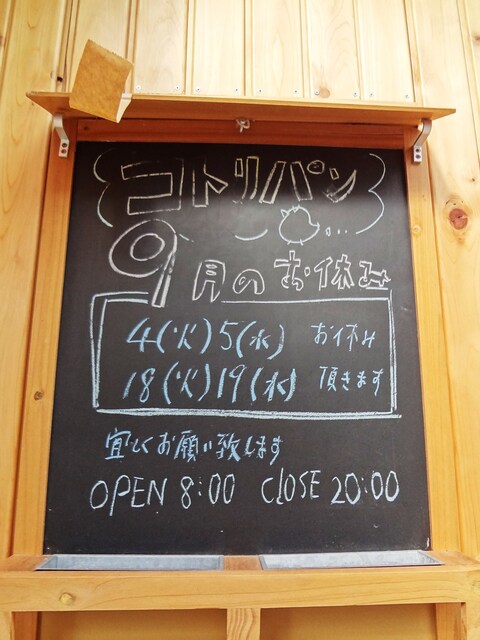 コトリパン
9月のお休み
4(火)5(水) お休み
18(火)19(水) 頂きます
宜しくお願い致します
OPEN 8:00 ClOSE 20:00